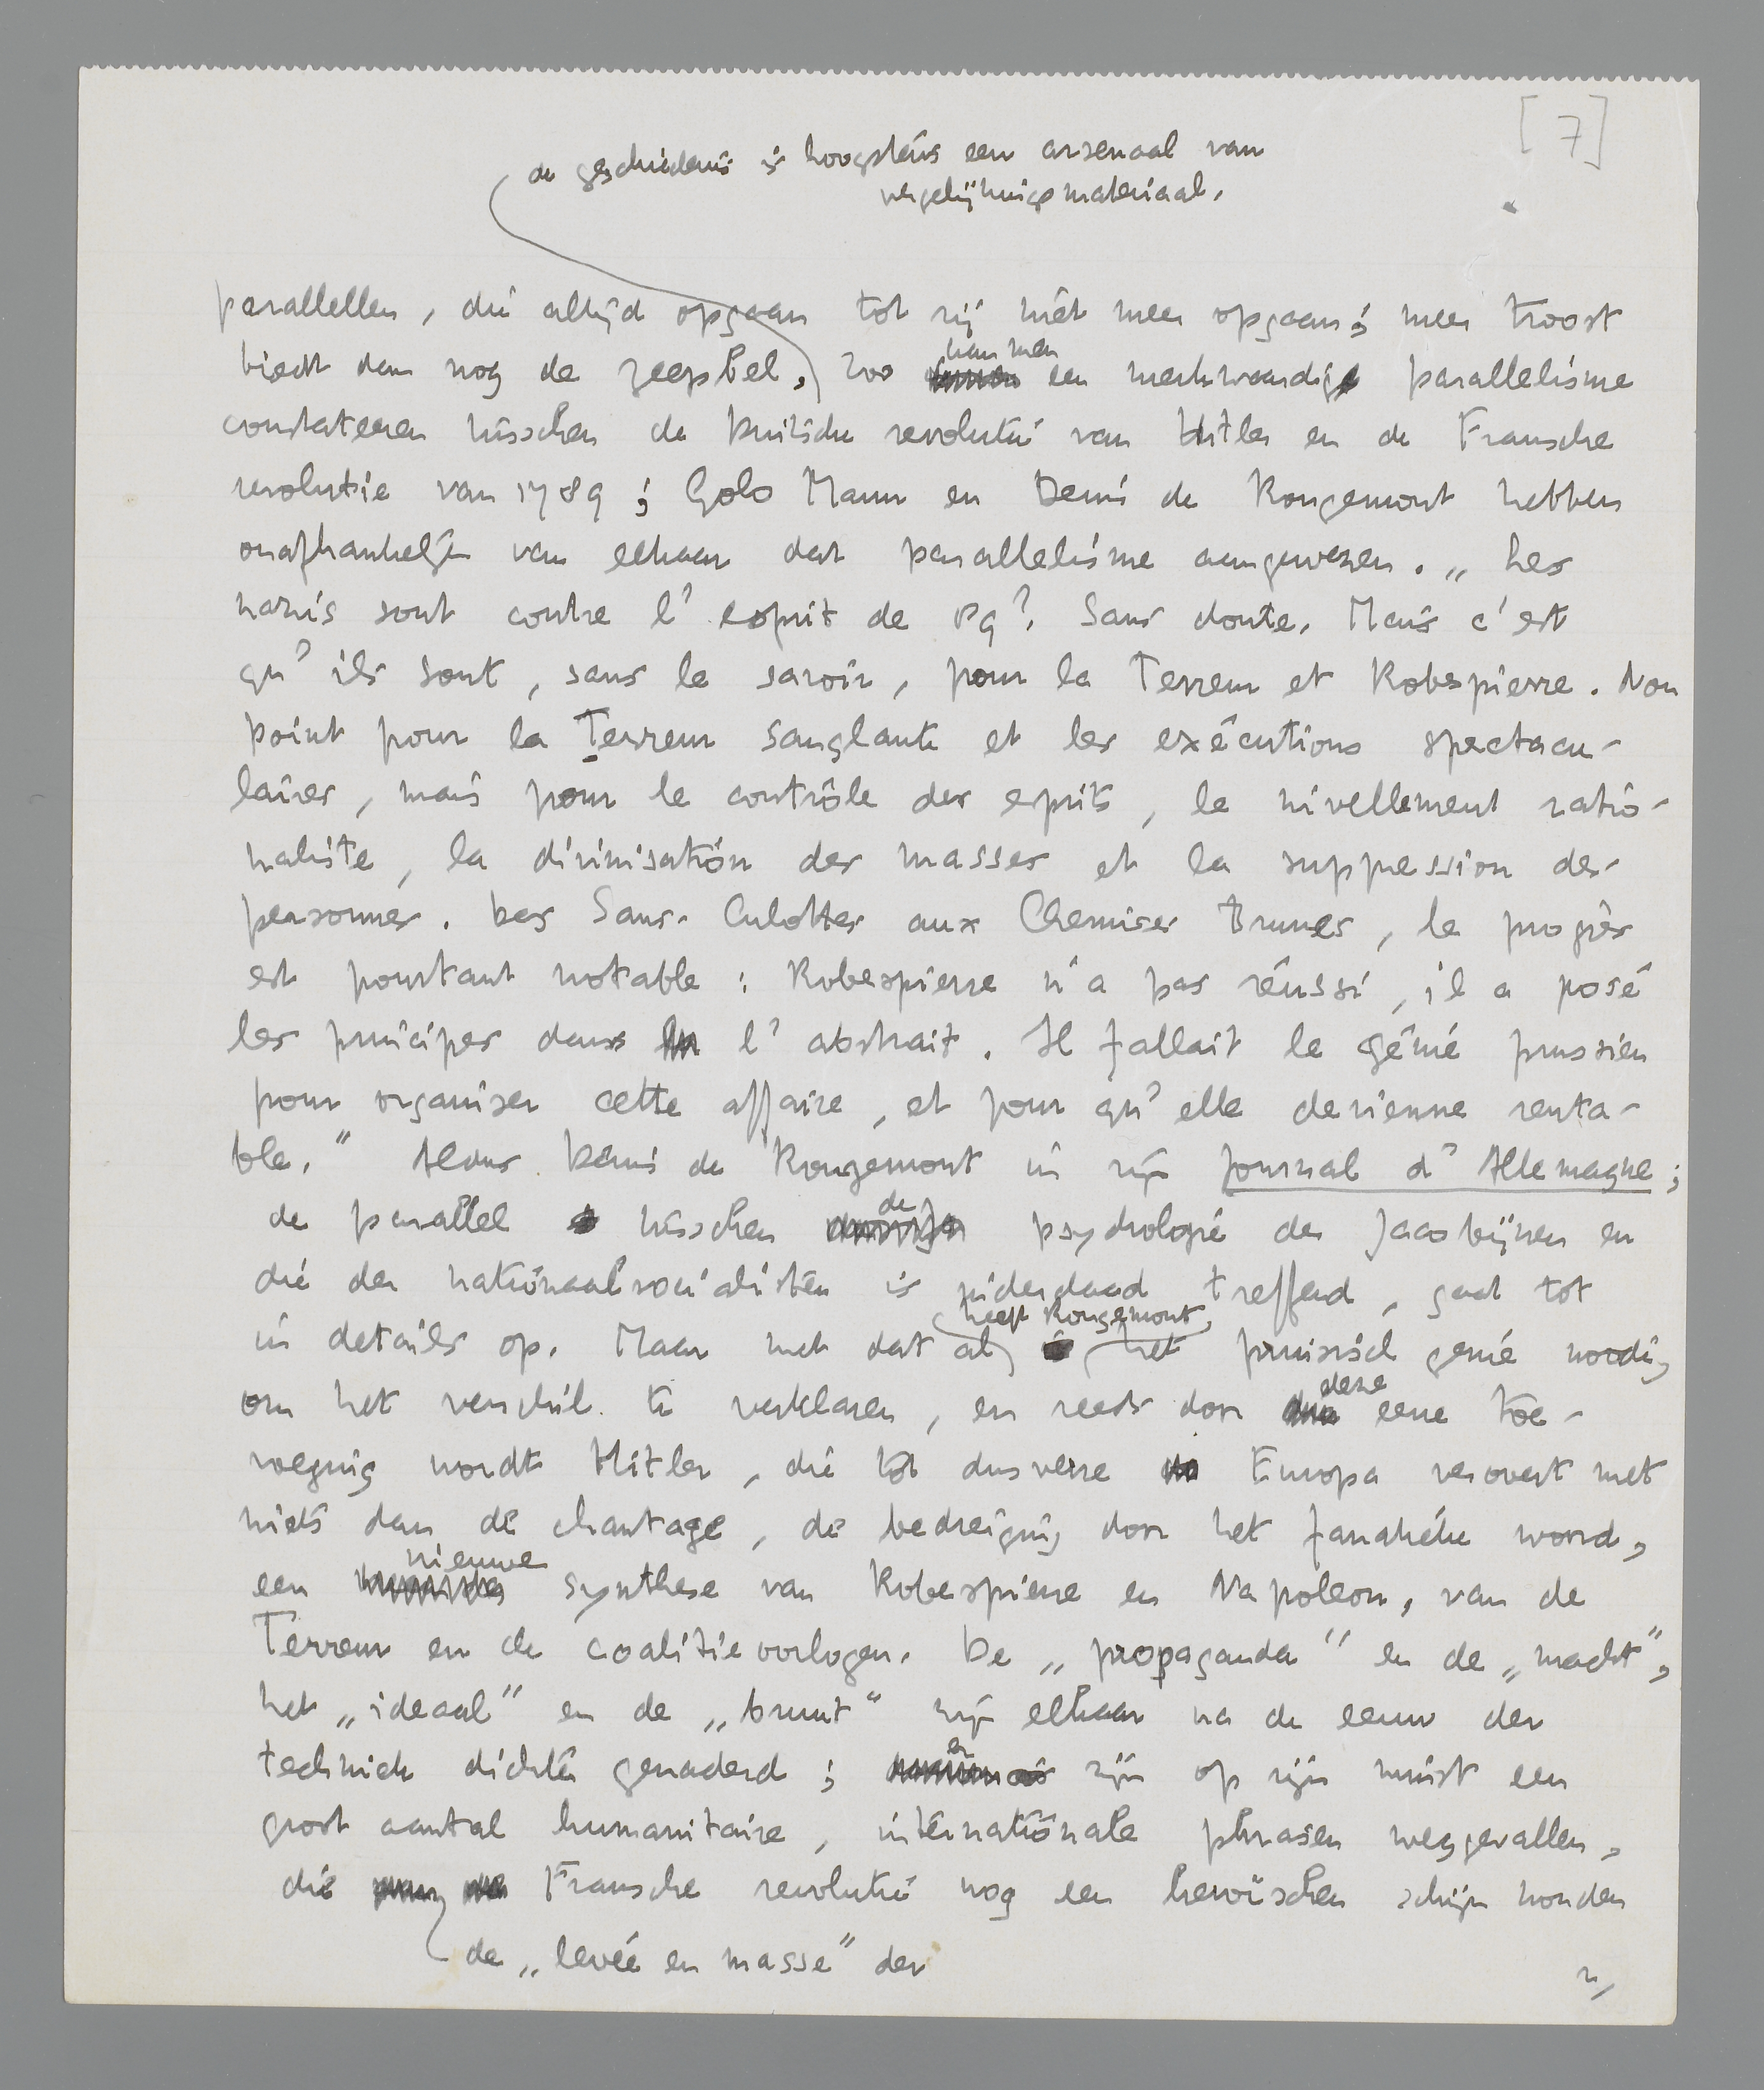 [7]
de geschiedenis is hoogstens een arsenaal van
vergelijkingsmateriaal.
parallellen, die altijd opgaan tot zij niet meer opgaan; meer troost
biedt dan nog de zeepbel. Zoo kan men een merkwaardig parallelisme
constateeren tusschen de Duitsche revolutie van Hitler en de Fransche
revolutie van 1789; Golo Mann en Denis de Rougemont hebben
onafhankelijk van elkaar dat parallelisme aangewezen. „Les
nazis sont contre l'esprit de 89? Sans doute. Mais c'est
qu'ils sont, sans le savoir, pour la Terreur et Robespierre. Non
point pour la Terreur sanglante et les exécutions spectacu-
laires, mais pour le contrôle des esprits, le nivellement ratio-
naliste, la divinisation des masses et la suppression des
personnes. Des Sans-Culottes aux Chemises Brunes, le progrès
est pourtant notable: Robespierre n'a pas réussi, il a posé
les principes dans l'abstrait. Il fallait le génie prussien
pour organiser cette affaire, et pour qu'elle devienne renta-
ble." Aldus Denis de Rougemont in zijn Journal d'Allemagne;
de parallel tusschen de psychologie der Jacobijnen en
die der nationaalsocialisten is inderdaad treffend, gaat tot
in details op. Maar met dat al heeft Rougemont het pruisisch genie noodig
om het verschil te verklaren, en reeds door deze eene toe-
voeging wordt Hitler, die tot dusverre Europa verovert met
niets dan de chantage, de bedreiging door het fanatieke woord,
een nieuwe synthese van Robespierre en Napoleon, van de
Terreur en de coalitieoorlogen. De „propaganda" en de „macht",
het „ideaal" en de „bruut" zijn elkaar na de eeuw der
techniek dichter genaderd; er zijn op zijn minst een
groot aantal humanitaire, internationale phrasen weggevallen,
die Fransche revolutie nog een heroïschen schijn konden
de „levée en masse" der